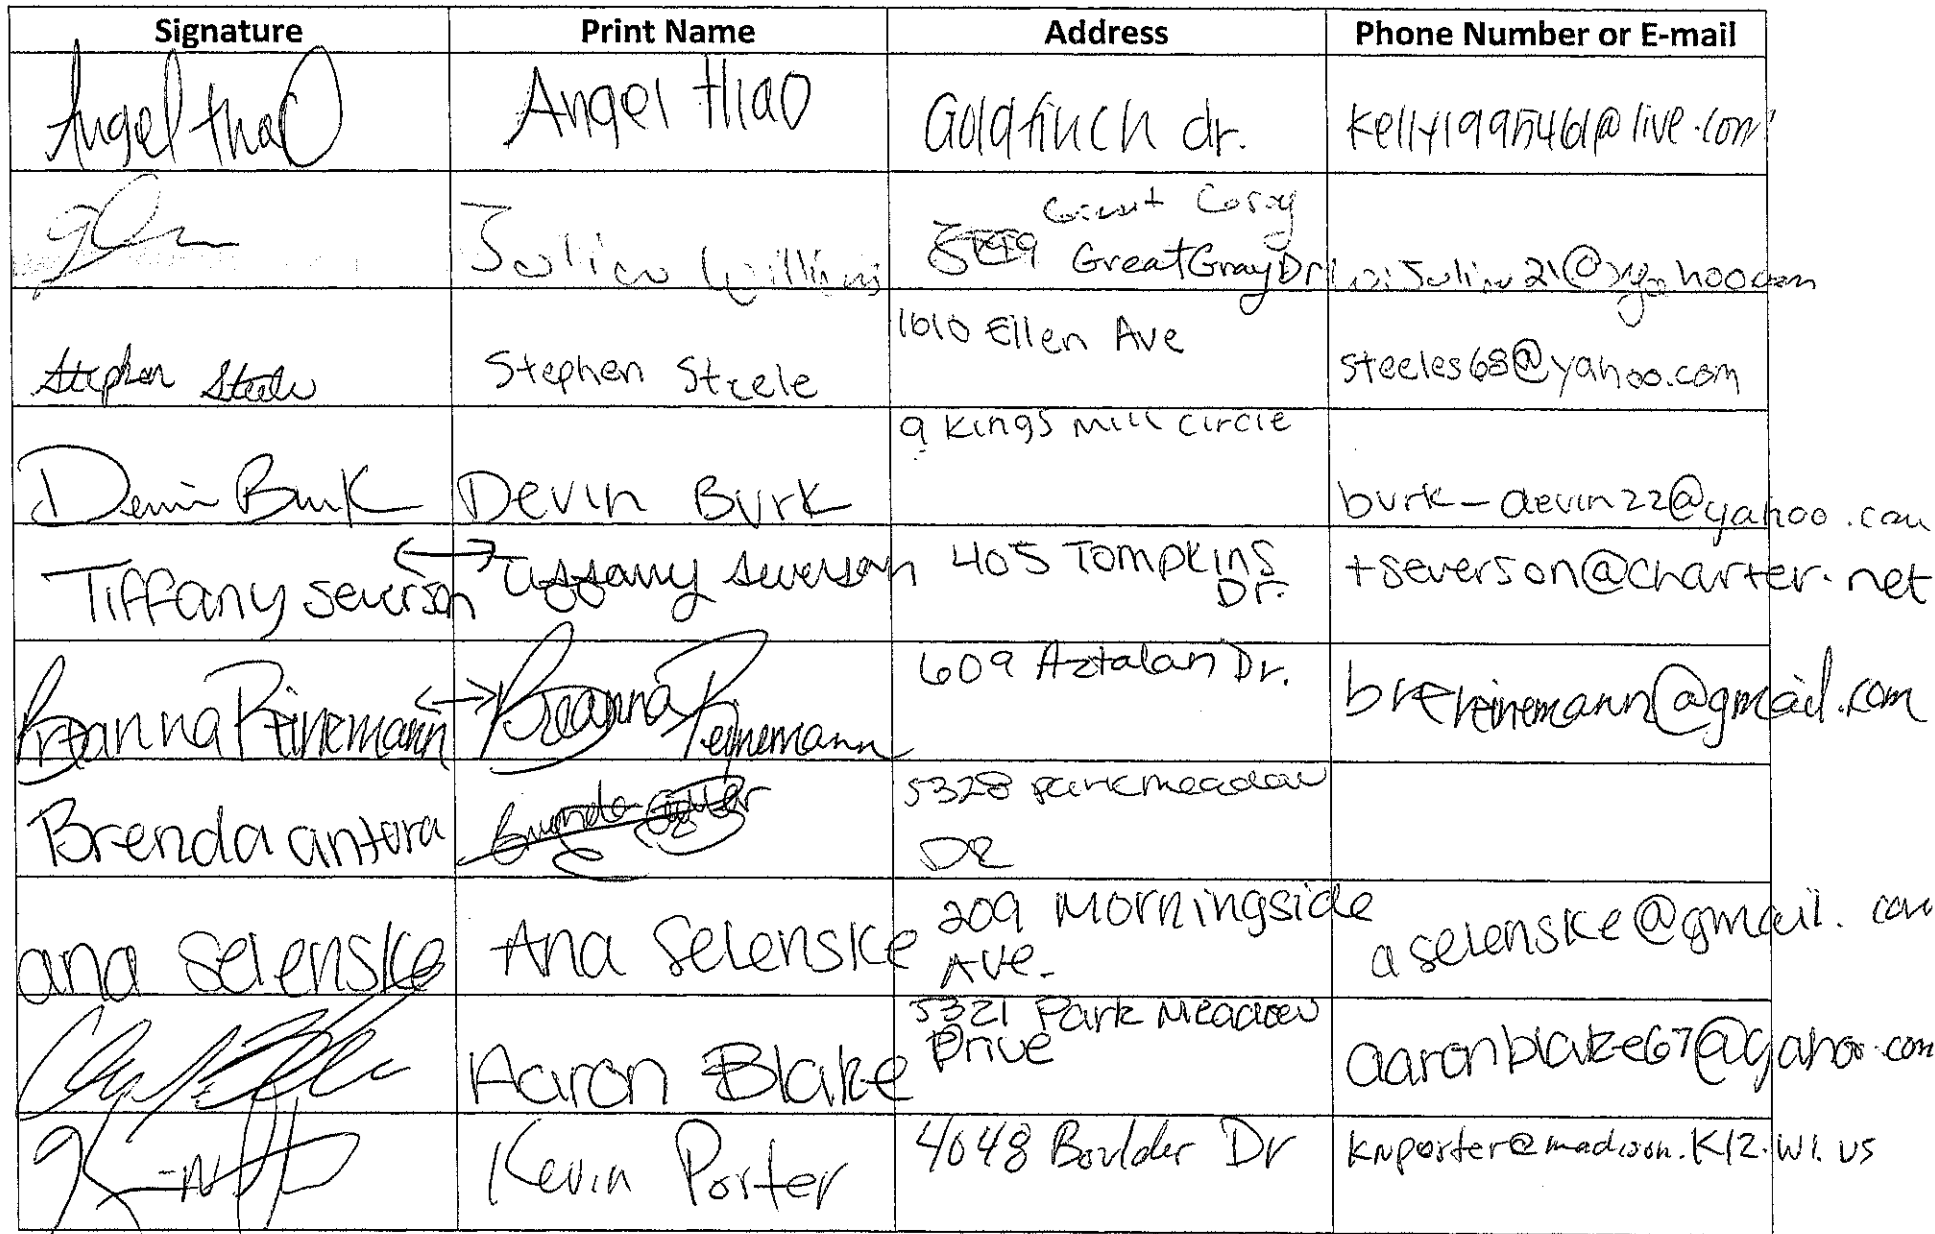 Signature Print Name Address Phone Number or E-mail
Angel thao Angel thao Goldfinch dr. kelly1995461@live.com
Great Gray Dr @yahoo.com
Stephen Steele Stephen Steele 1610 Ellen Ave steeles68@yahoo.com
9 Kings Mill Circle
Devin Burk Devin Burk burk-devin22@yahoo.com
Tiffany Severson Tiffany Severson 405 Tompkins tseverson@charter.net
Dr.
Breanna Reinemann Breanna Reinemann 609 Aztalan Dr. brereinemann@gmail.com
Brenda antora 5328 parkmeadow
DR
ana selenske Ana Selenske 209 Morningside aselenske@gmail.com
Ave.
Aaron Blake 5321 Park Meadow aaronblake67@yahoo.com
Drive
Kevin Porter 4048 Boulder Dr knporter@madison.k12.wi.us